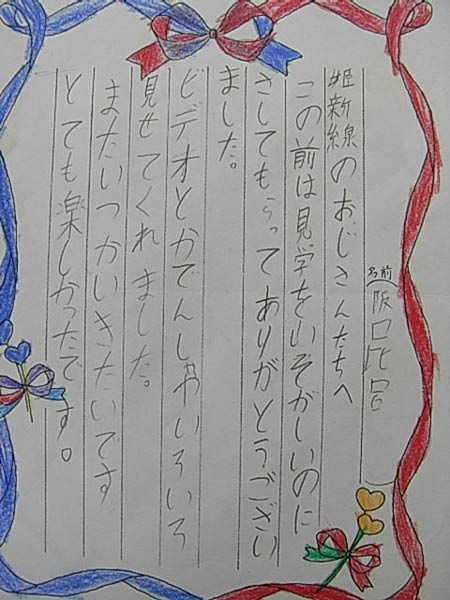 名前（阪口
姫新線のおじさんたちへ
この前は見学をいそがしいのに
さしてもらってありがとうござい
ました。
ビデオとかでんしゃいろいろ
見せてくれました。
またいつかいきたいです
とても楽しかったです。